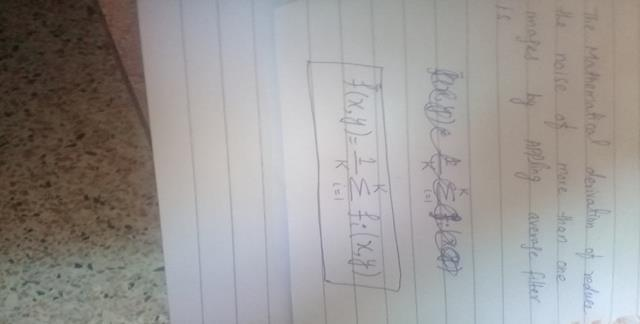 The Mathematical derivation of reduce
the noise of more than one
images by Appling average filter
is
f̄(x,y) = 1/K Σ_{i=1}^{K} f_i(x,y)